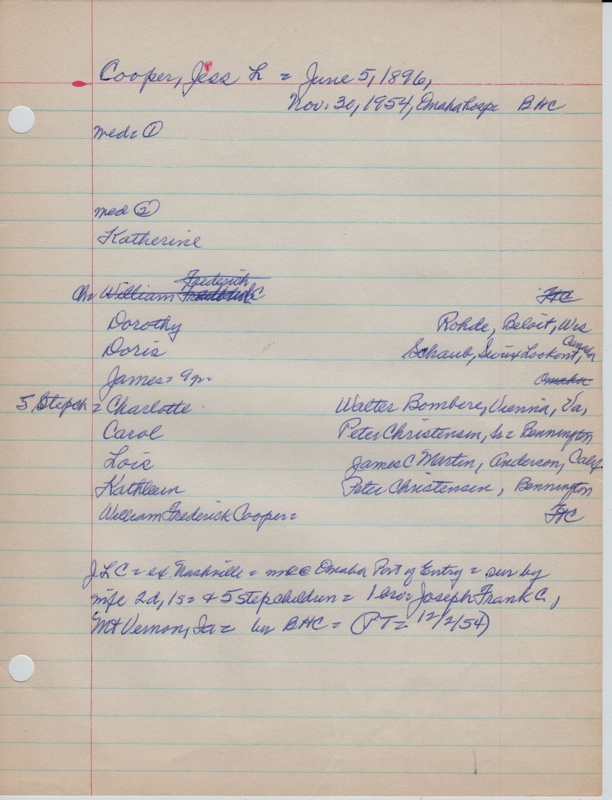 Cooper, Jess L = June 5, 1896,
Nov. 30, 1954, Omaha hosp. BHC
med = ①
med ②
Katherine
Ch = William Frederick FHC
Dorothy Rohde, Beloit, Wis
Doris Schaub, Sioux Lookout, Canada
James = 9 Omaha
5 Stepch = Charlotte Walter Bombere, Vienna, Va,
Carol Peter Christensen, = Bennington
Lois James C Martin, Anderson, Calif
Kathleen Peter Christensen, Bennington
William Frederick Cooper = FHC
JLC = ex Nashville = Omaha Port of Entry = sur by
wife 2d, 1s = + 5 stepchildren = 1 bror Joseph Frank C.,
Mt Vernon, Ia = by BHC = (PT = 12/2/54)